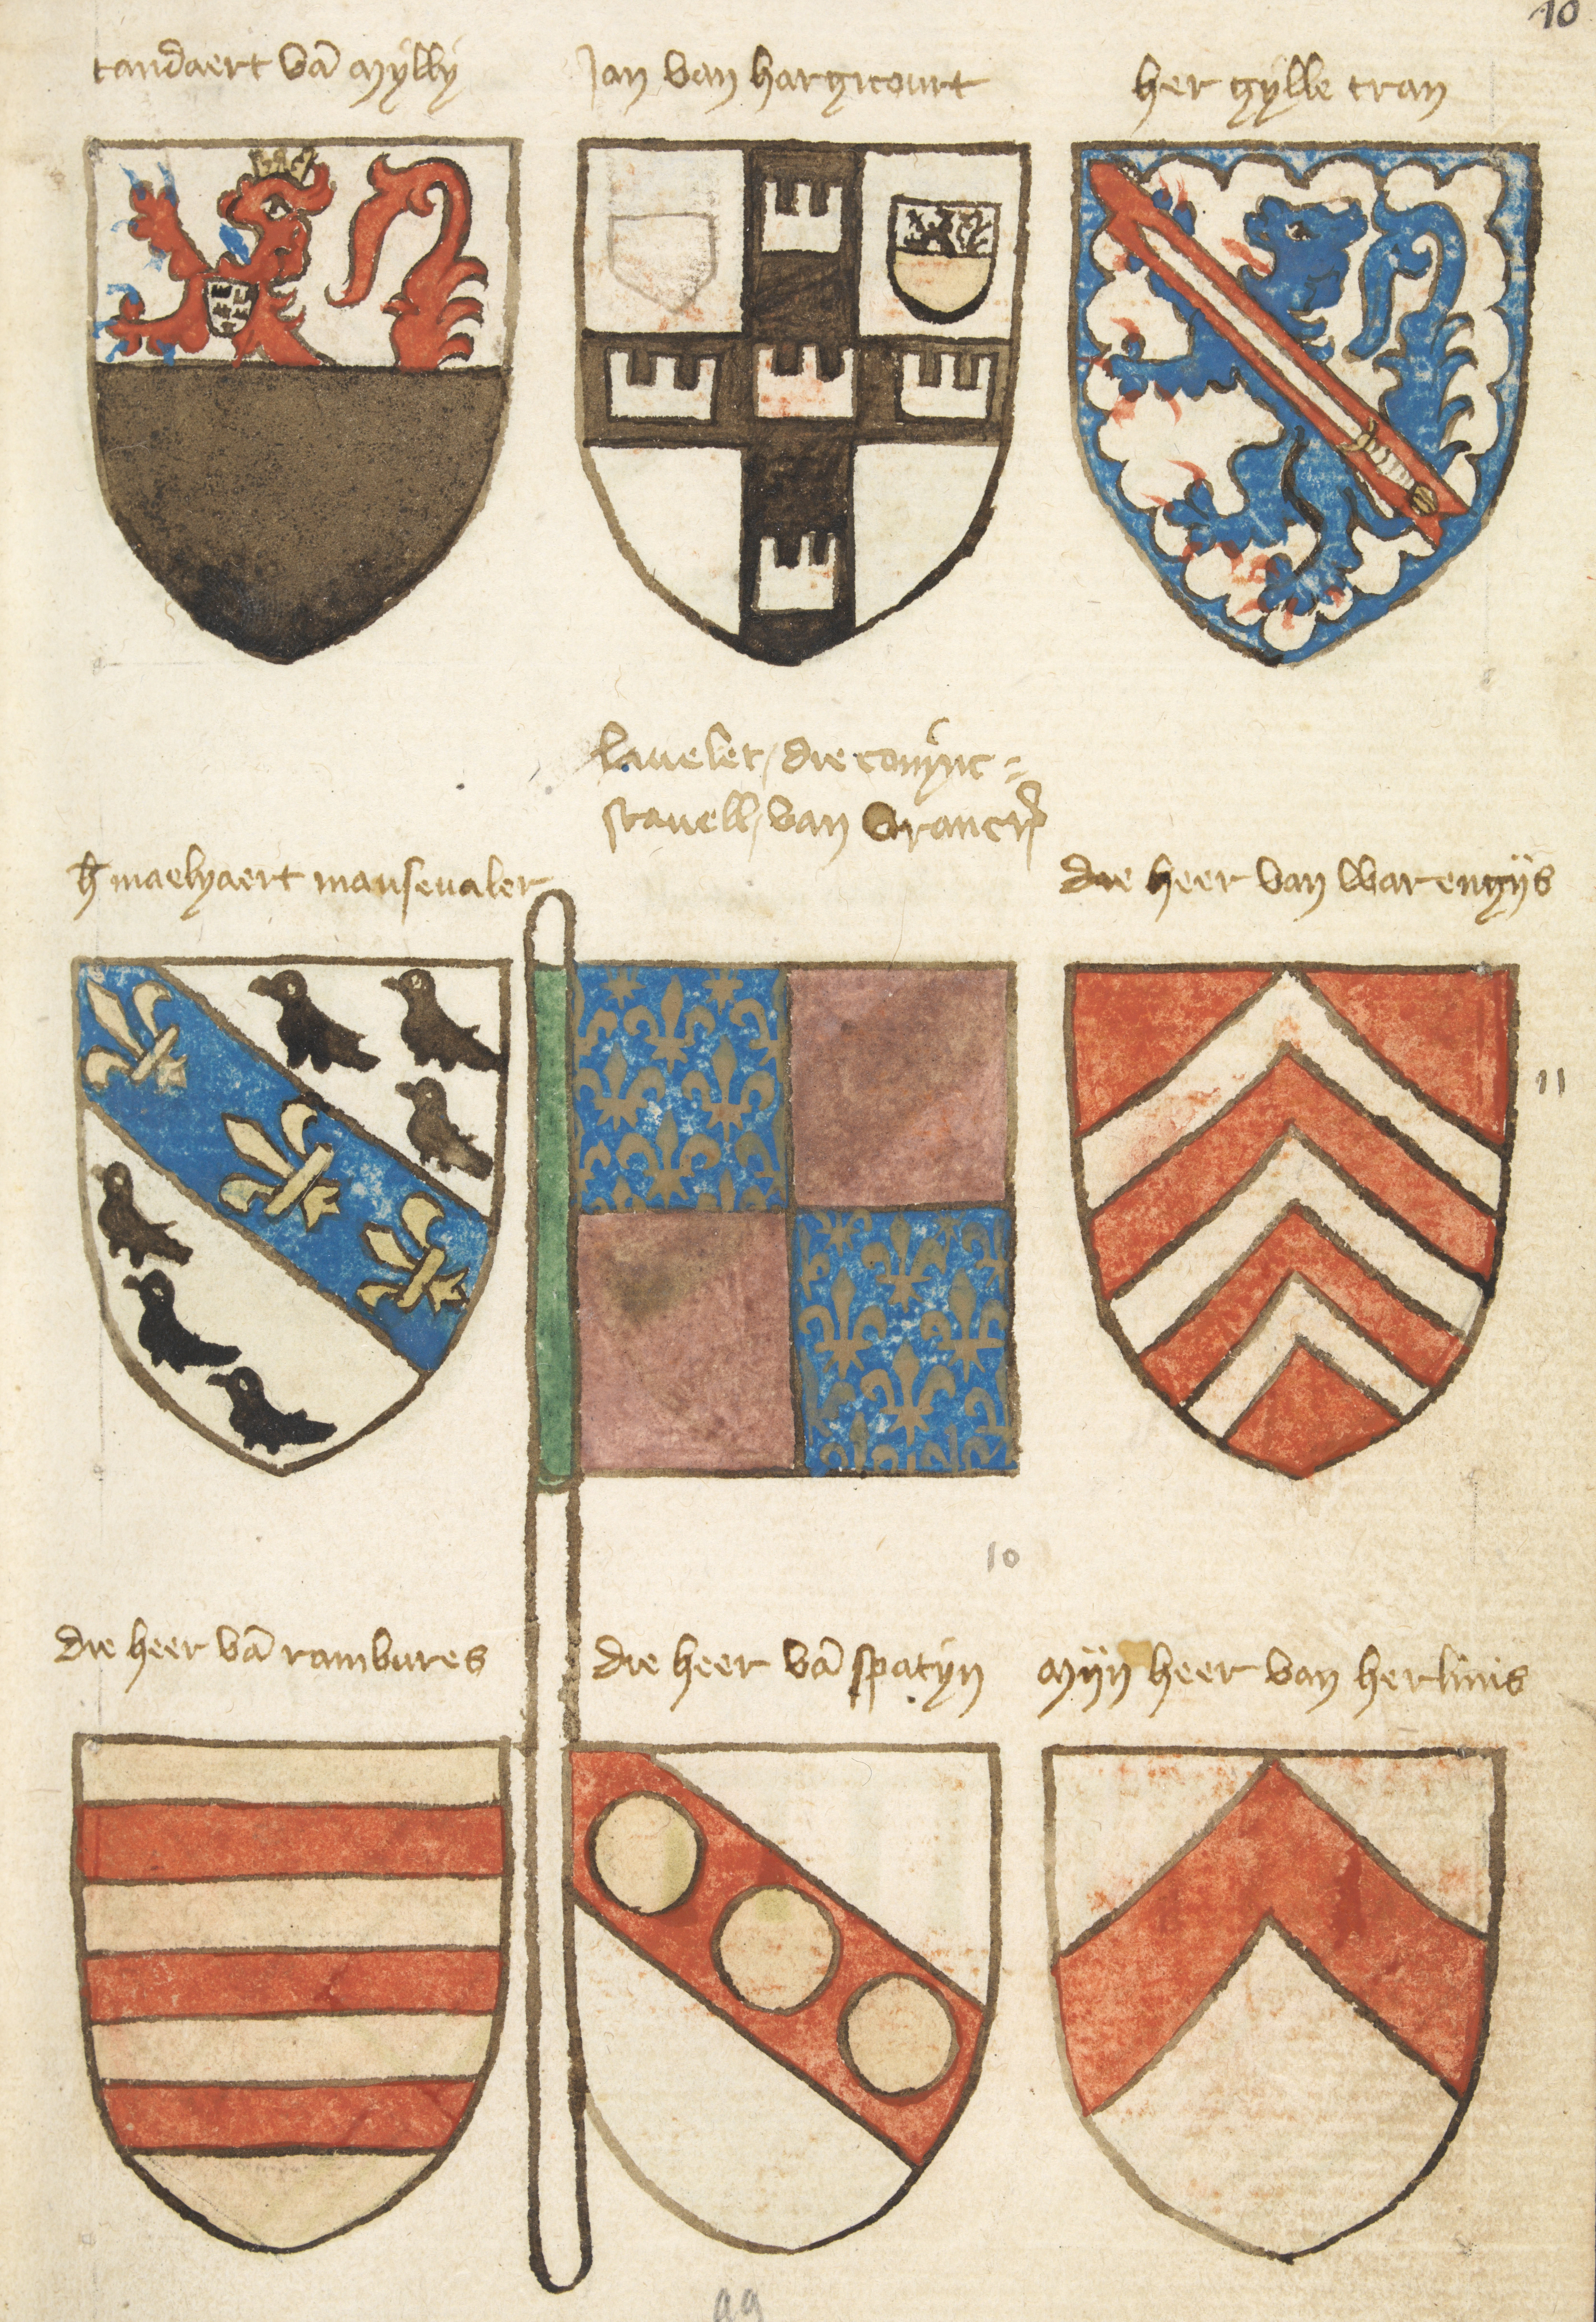 10
tandaert vā mÿllÿ
Jan van hargicourt
her gÿlle tran
lauelet / die conÿnc =
stauell / van vrancrÿc
h maelyaert mausevaler
die heer van warengijs
11
10
die heer vā rambures
die heer vā spatÿn
mijn heer van herlinis
99